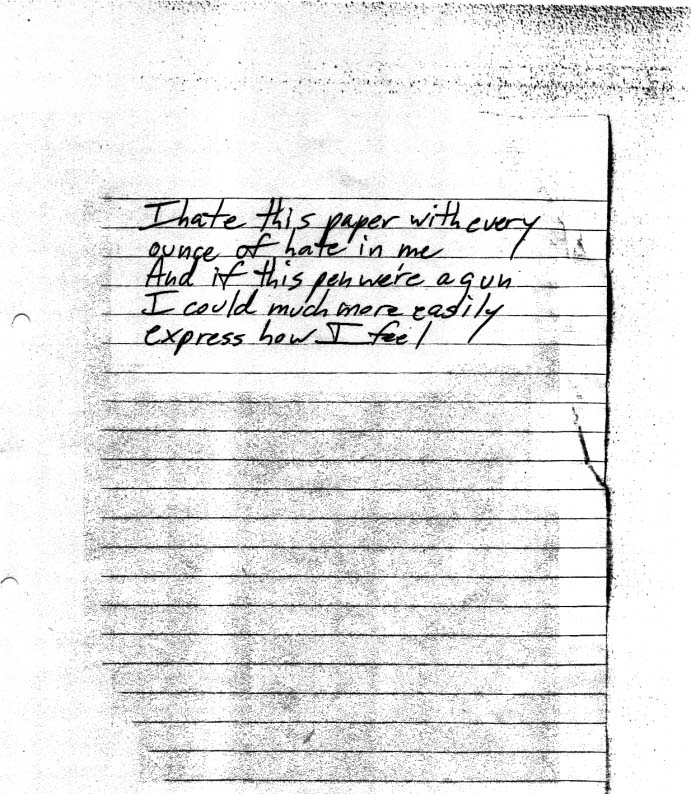 I hate this paper with every
ounce of hate in me
And if this pen we're a gun
I could much more easily
express how I feel